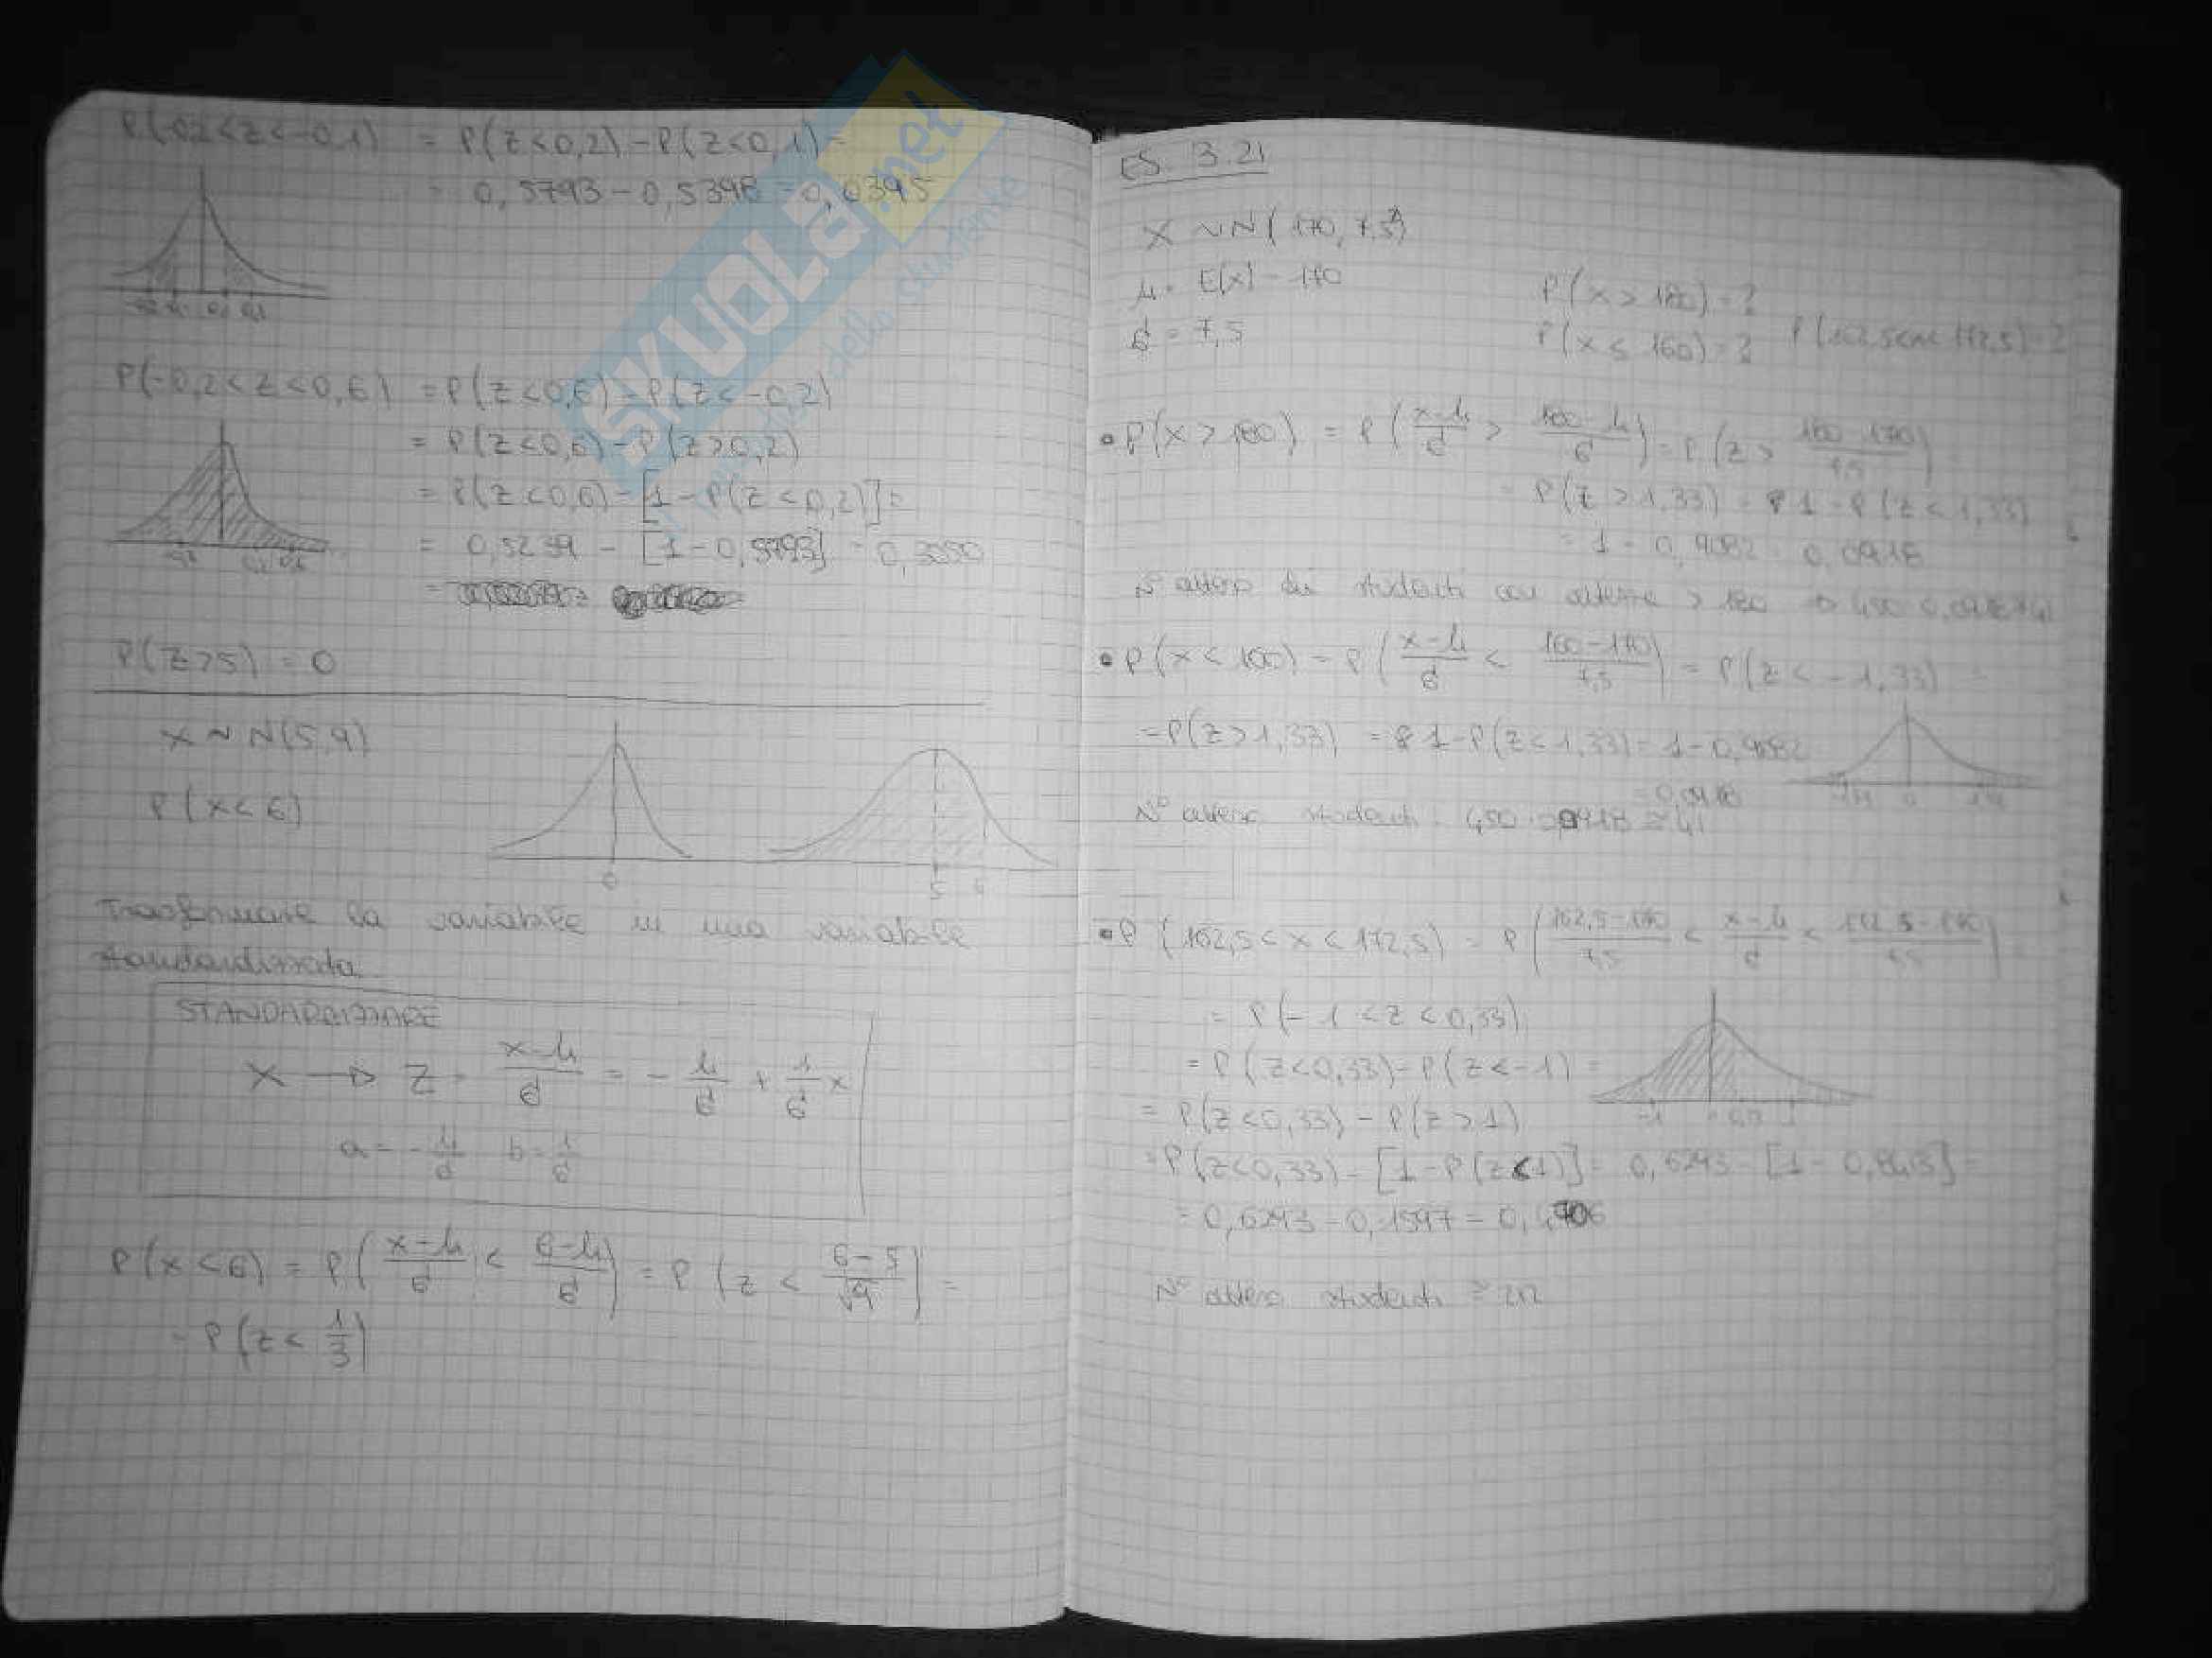 P(-0,2 < Z < -0,1) = P(Z < 0,2) - P(Z < 0,1) =
= 0,5793 - 0,5398 = 0,0395
P(-0,2 < Z < 0,6) = P(Z < 0,6) - P(Z < -0,2)
= P(Z < 0,6) - P(Z > 0,2)
= P(Z < 0,6) - [1 - P(Z < 0,2)] =
= - [1 - 0,5793] =
P(Z > 5) = 0
X ~ N(5,9)
P(x < 6)
0 5 6
Trasformare la variabile in una variabile
standardizzata
STANDARDIZZARE
X → Z = x-μ/σ = - μ/σ + 1/σ x
a = - μ/σ b = 1/σ
P(x < 6) = P(x-μ/σ < 6-μ/σ) = P(z < 6-5/√9) =
= P(z < 1/3)
ES. 3.21
X ~ N(170, 7,5²)
μ = E(x) = 170
σ = 7,5
P(x > 180) = ?
P(x ≤ 160) = ? P(162,5 < x < 172,5) = ?
• P(x > 180) = P(x-μ/σ > 180-μ/σ) = P(z > 180-170/7,5)
= P(z > 1,33) = 1 - P(z < 1,33)
= 1 - 0,9082 = 0,0918
N° studenti con altezza > 180 → 450 · 0,0918 ≅ 41
• P(x < 160) = P(x-μ/σ < 160-170/7,5) = P(z < -1,33) =
= P(z > 1,33) = 1 - P(z < 1,33) = 1 - 0,9082
= 0,0918
N° altezza studenti : 450 · 0,0918 ≅ 41
• P(162,5 < x < 172,5) = P(162,5-170/7,5 < x-μ/σ < 172,5-170/7,5)
= P(-1 < z < 0,33)
= P(z < 0,33) - P(z < -1) =
= P(z < 0,33) - P(z > 1)
= P(z < 0,33) - [1 - P(z < 1)] = 0,6293 - [1 - 0,8413] =
= 0,6293 - 0,1597 = 0,4706
N° altezza studenti ≅ 212
SKUOLA.net
dello studente